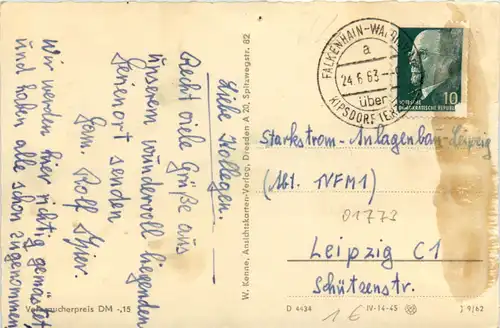 Liebe Kollegen.
Recht viele Grüße aus
unserem wundervoll liegenden
Ferienort senden
Fam. Rolf
Wir werden hier richtig gemästet
und haben alle schon zugenommen
W. Kenne, Ansichtskarten-Verlag, Dresden A 20, Spitzwegstr. 62
Verbraucherpreis DM -,15
FALKENHAIN-
a
24.6.63
über
KIPSDORF
DEUTSCHE
DEMOKRATISCHE REPUBLIK
10
Starkstrom-Anlagenbau-Leipzig
(Abt. TVFM1)
01773
Leipzig C1
Schützenstr.
1€
D 4434 IV-14-45 J 9/62